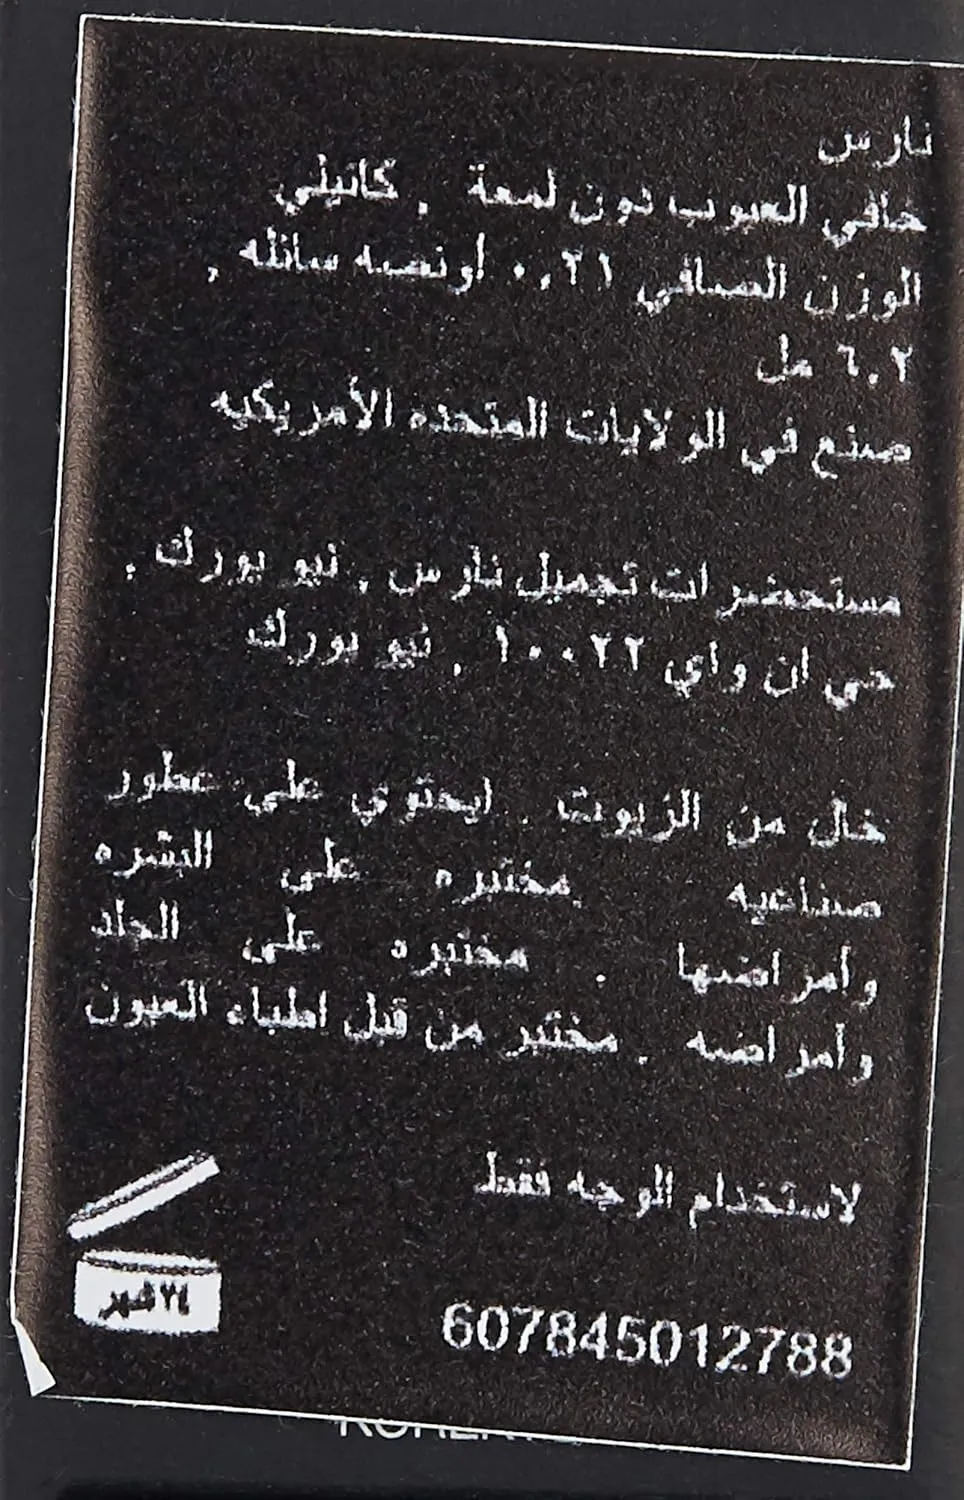 نارس
خافي العيوب دون لمعة . كانيلي
الوزن الصافي ٠,٢١ أونصه سائله ,
٦,٢ مل
صنع في الولايات المتحده الأمريكيه
مستحضرات تجميل نارس , نيو يورك ,
جي ان واي ١٠٠٢٢ , نيو يورك
خال من الزيوت . لايحتوي على عطور
صناعيه . مختبره على البشره
وأمراضها . مختبره على الجلد
وأمراضه . مختبر من قبل اطباء العيون
لاستخدام الوجه فقط
٢٤ شهر
607845012788